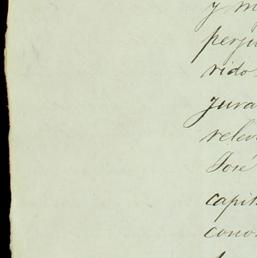 y m
perju
rido
jura
relev
José
capit
cono